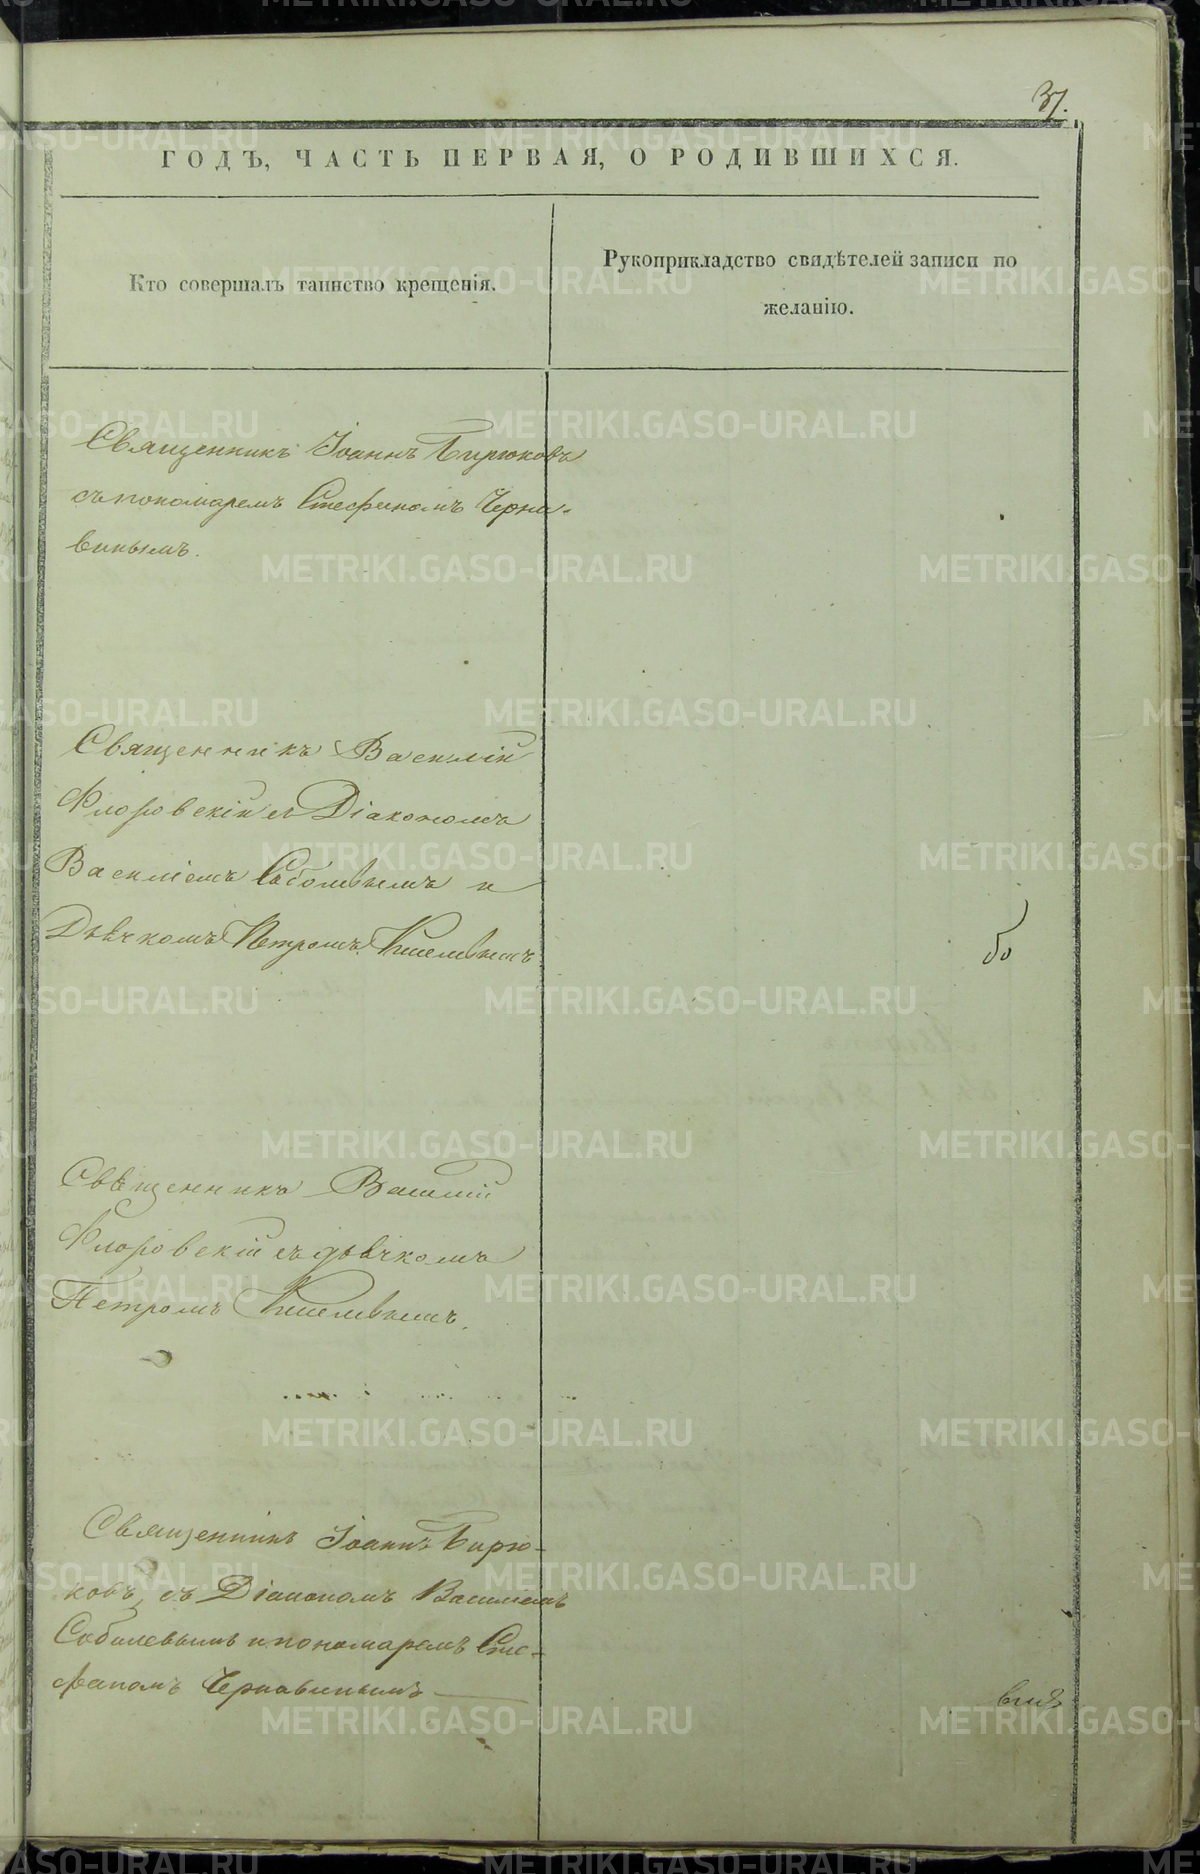 37.
ГОДЪ, ЧАСТЬ ПЕРВАЯ, О РОДИВШИХСЯ.
Кто совершалъ таинство крещенія.
Рукоприкладство свидѣтелей записи по
желанію.
Священникъ Іоаннъ Бирюковъ
съ пономаремъ Стефаномъ Черна-
винымъ.
Священникъ Василій
Флоровскій съ Діакономъ
Василіемъ Соболевымъ и
Дьячкомъ Петромъ Киселевымъ
Священникъ Василій
Флоровскій съ дьячкомъ
Петромъ Киселевымъ.
Священникъ Іоаннъ Бирю-
ковъ съ Діакономъ Василіемъ
Соболевымъ и пономаремъ Сте-
фаномъ Чернавинымъ
METRIKI.GASO-URAL.RU